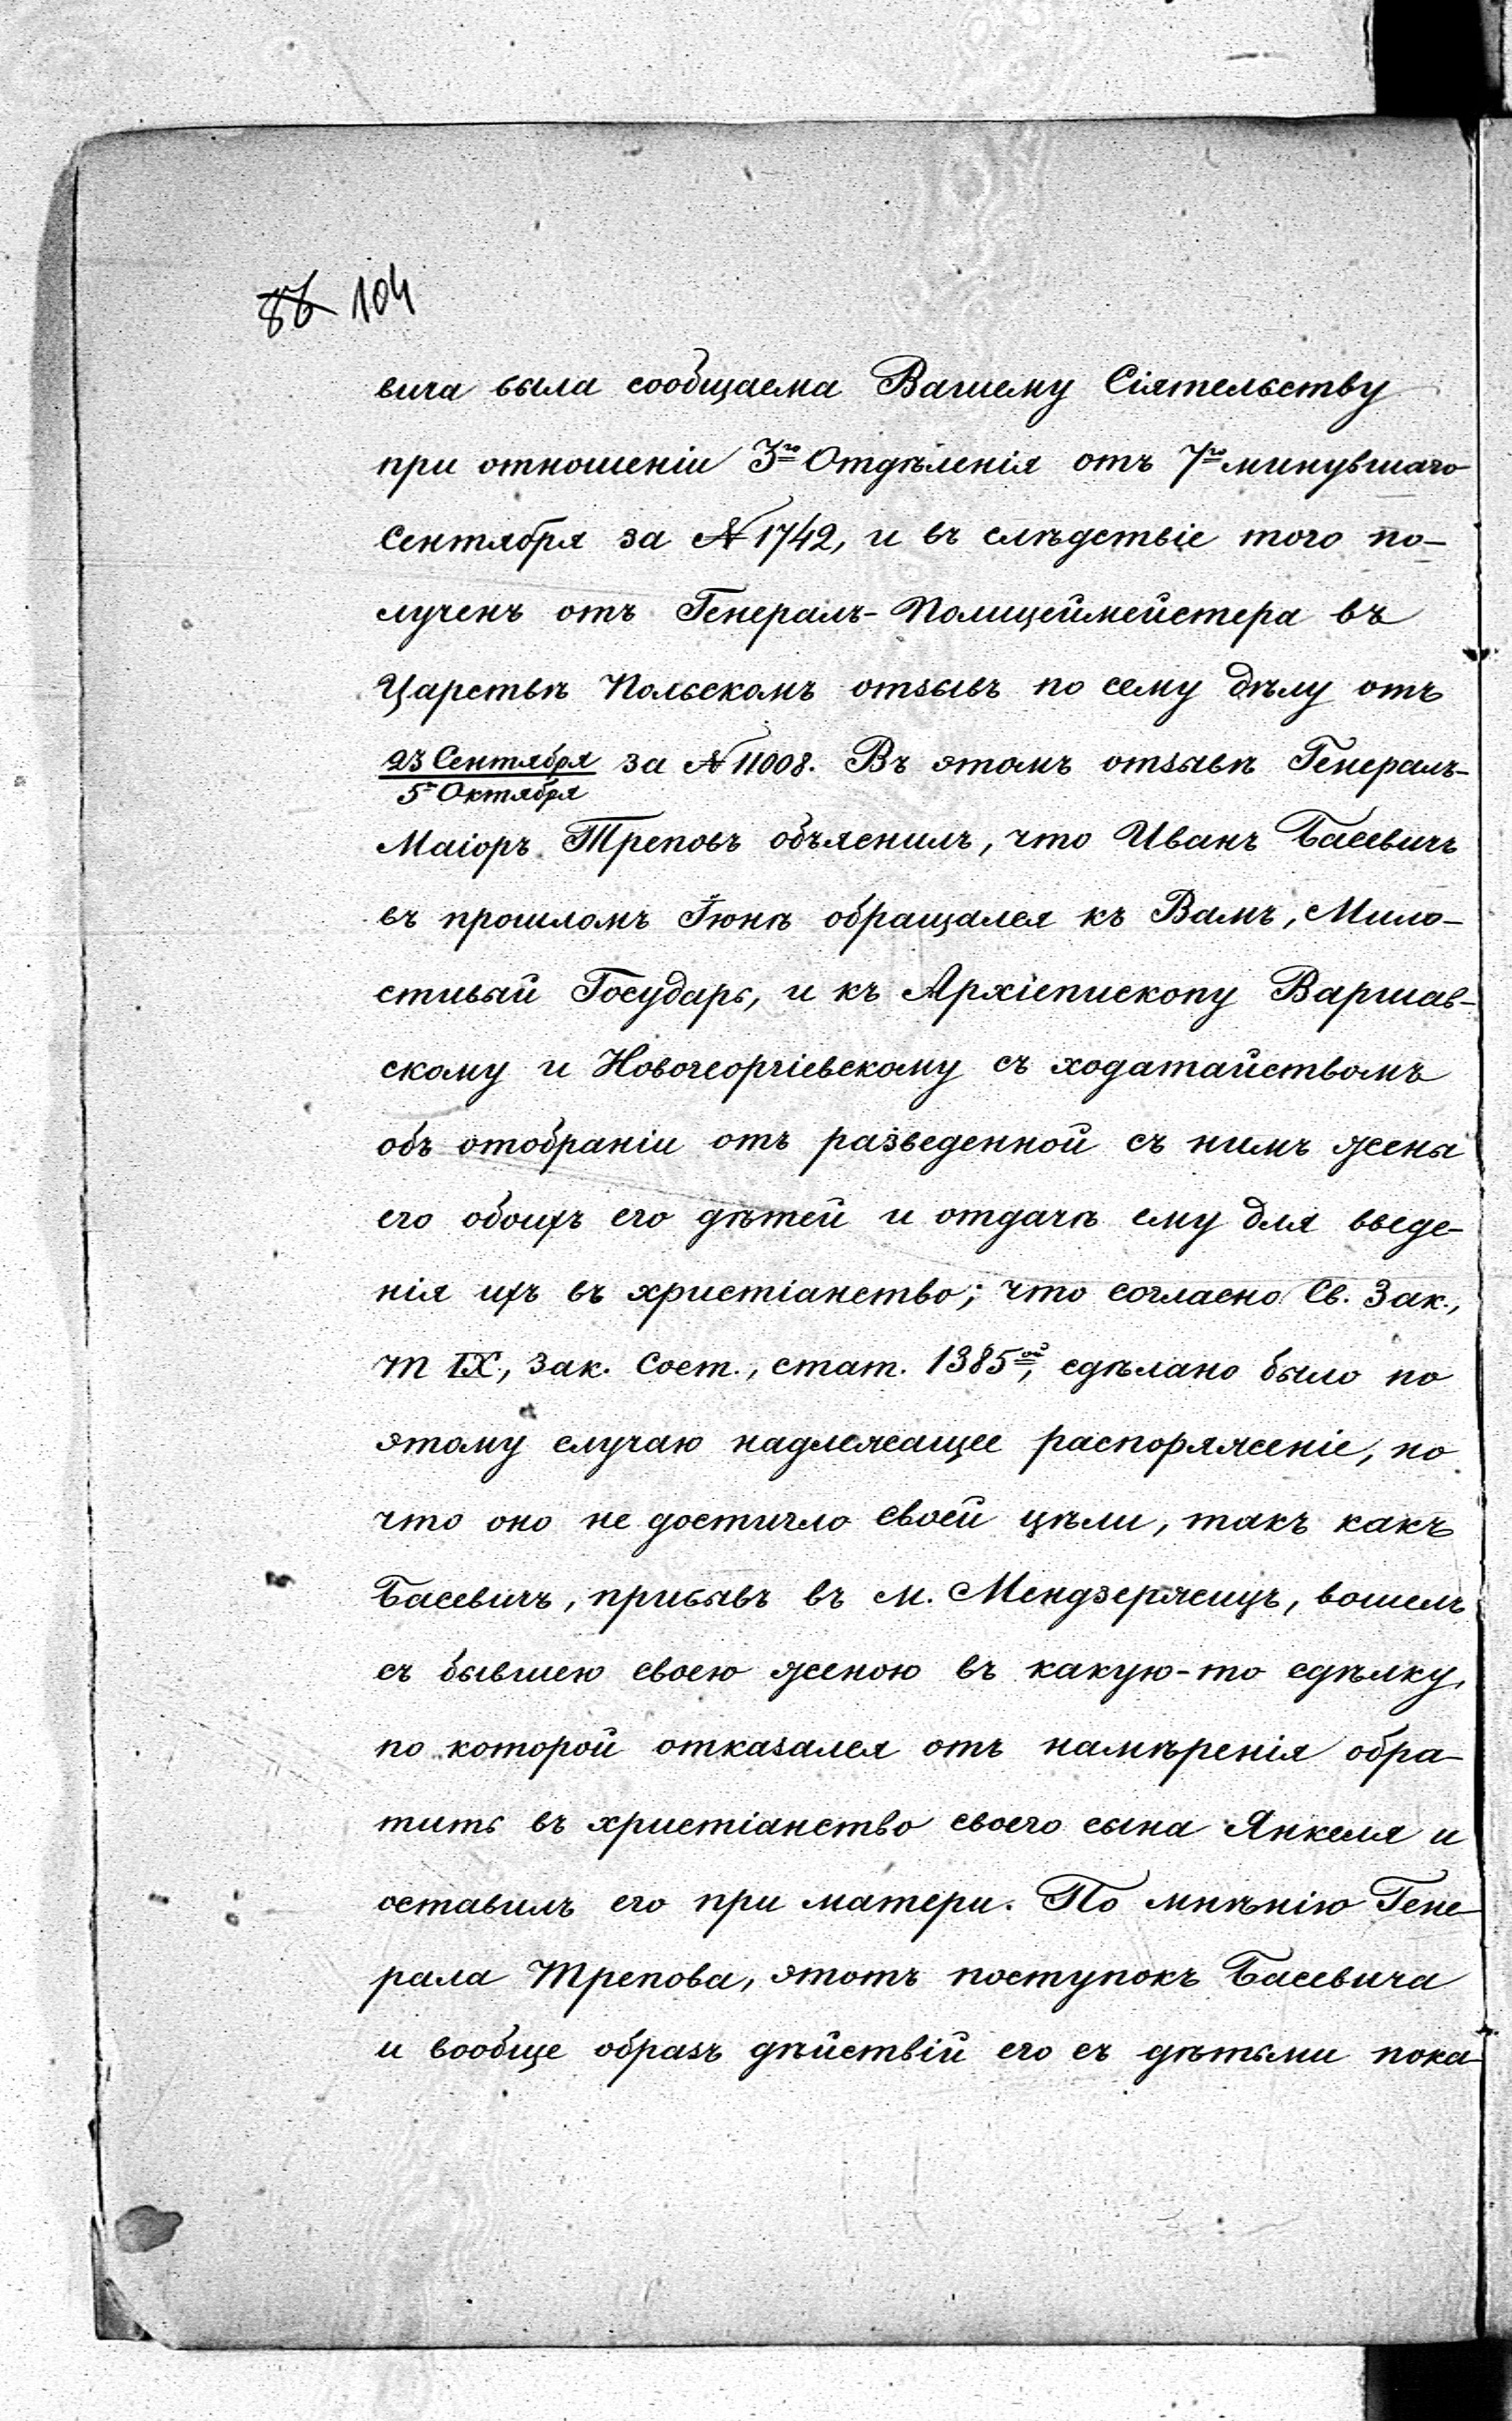 86 104
вича была сообщаема Вашему Сіятельству
при отношеніи 3го Отдѣленія отъ 7го минувшаго
Сентября за № 1742, и въ слѣдствіе того по-
лученъ отъ Генералъ-Полицеймейстера въ
Царствѣ Польскомъ отзывъ по сему дѣлу отъ
23 Сентября за № 11008. Въ этомъ отзывѣ Генералъ-
5 Октября
Маіоръ Треповъ объяснилъ, что Иванъ Басевичъ
въ прошломъ Іюнѣ обращался къ Вамъ, Мило-
стивый Государь, и къ Архіепископу Варшав-
скому и Новогеоргіевскому съ ходатайствомъ
объ отобраніи отъ разведенной съ нимъ жены
его обоихъ его дѣтей и отдачѣ ему для введе-
нія ихъ въ христіанство; что согласно Св. Зак.,
т IX, Зак. Сост., стат. 1385ой, сдѣлано было по
этому случаю надлежащее распоряженіе, но
что оно не достигло своей цѣли, такъ какъ
Басевичъ, прибывъ въ м. Мендзержицъ, вошелъ
съ бывшею своею женою въ какую-то сдѣлку,
по которой отказался отъ намѣренія обра-
тить въ христіанство своего сына Янкеля и
оставилъ его при матери. По мнѣнію Гене-
рала Трепова, этотъ поступокъ Басевича
и вообще образъ дѣйствій его съ дѣтьми пока-